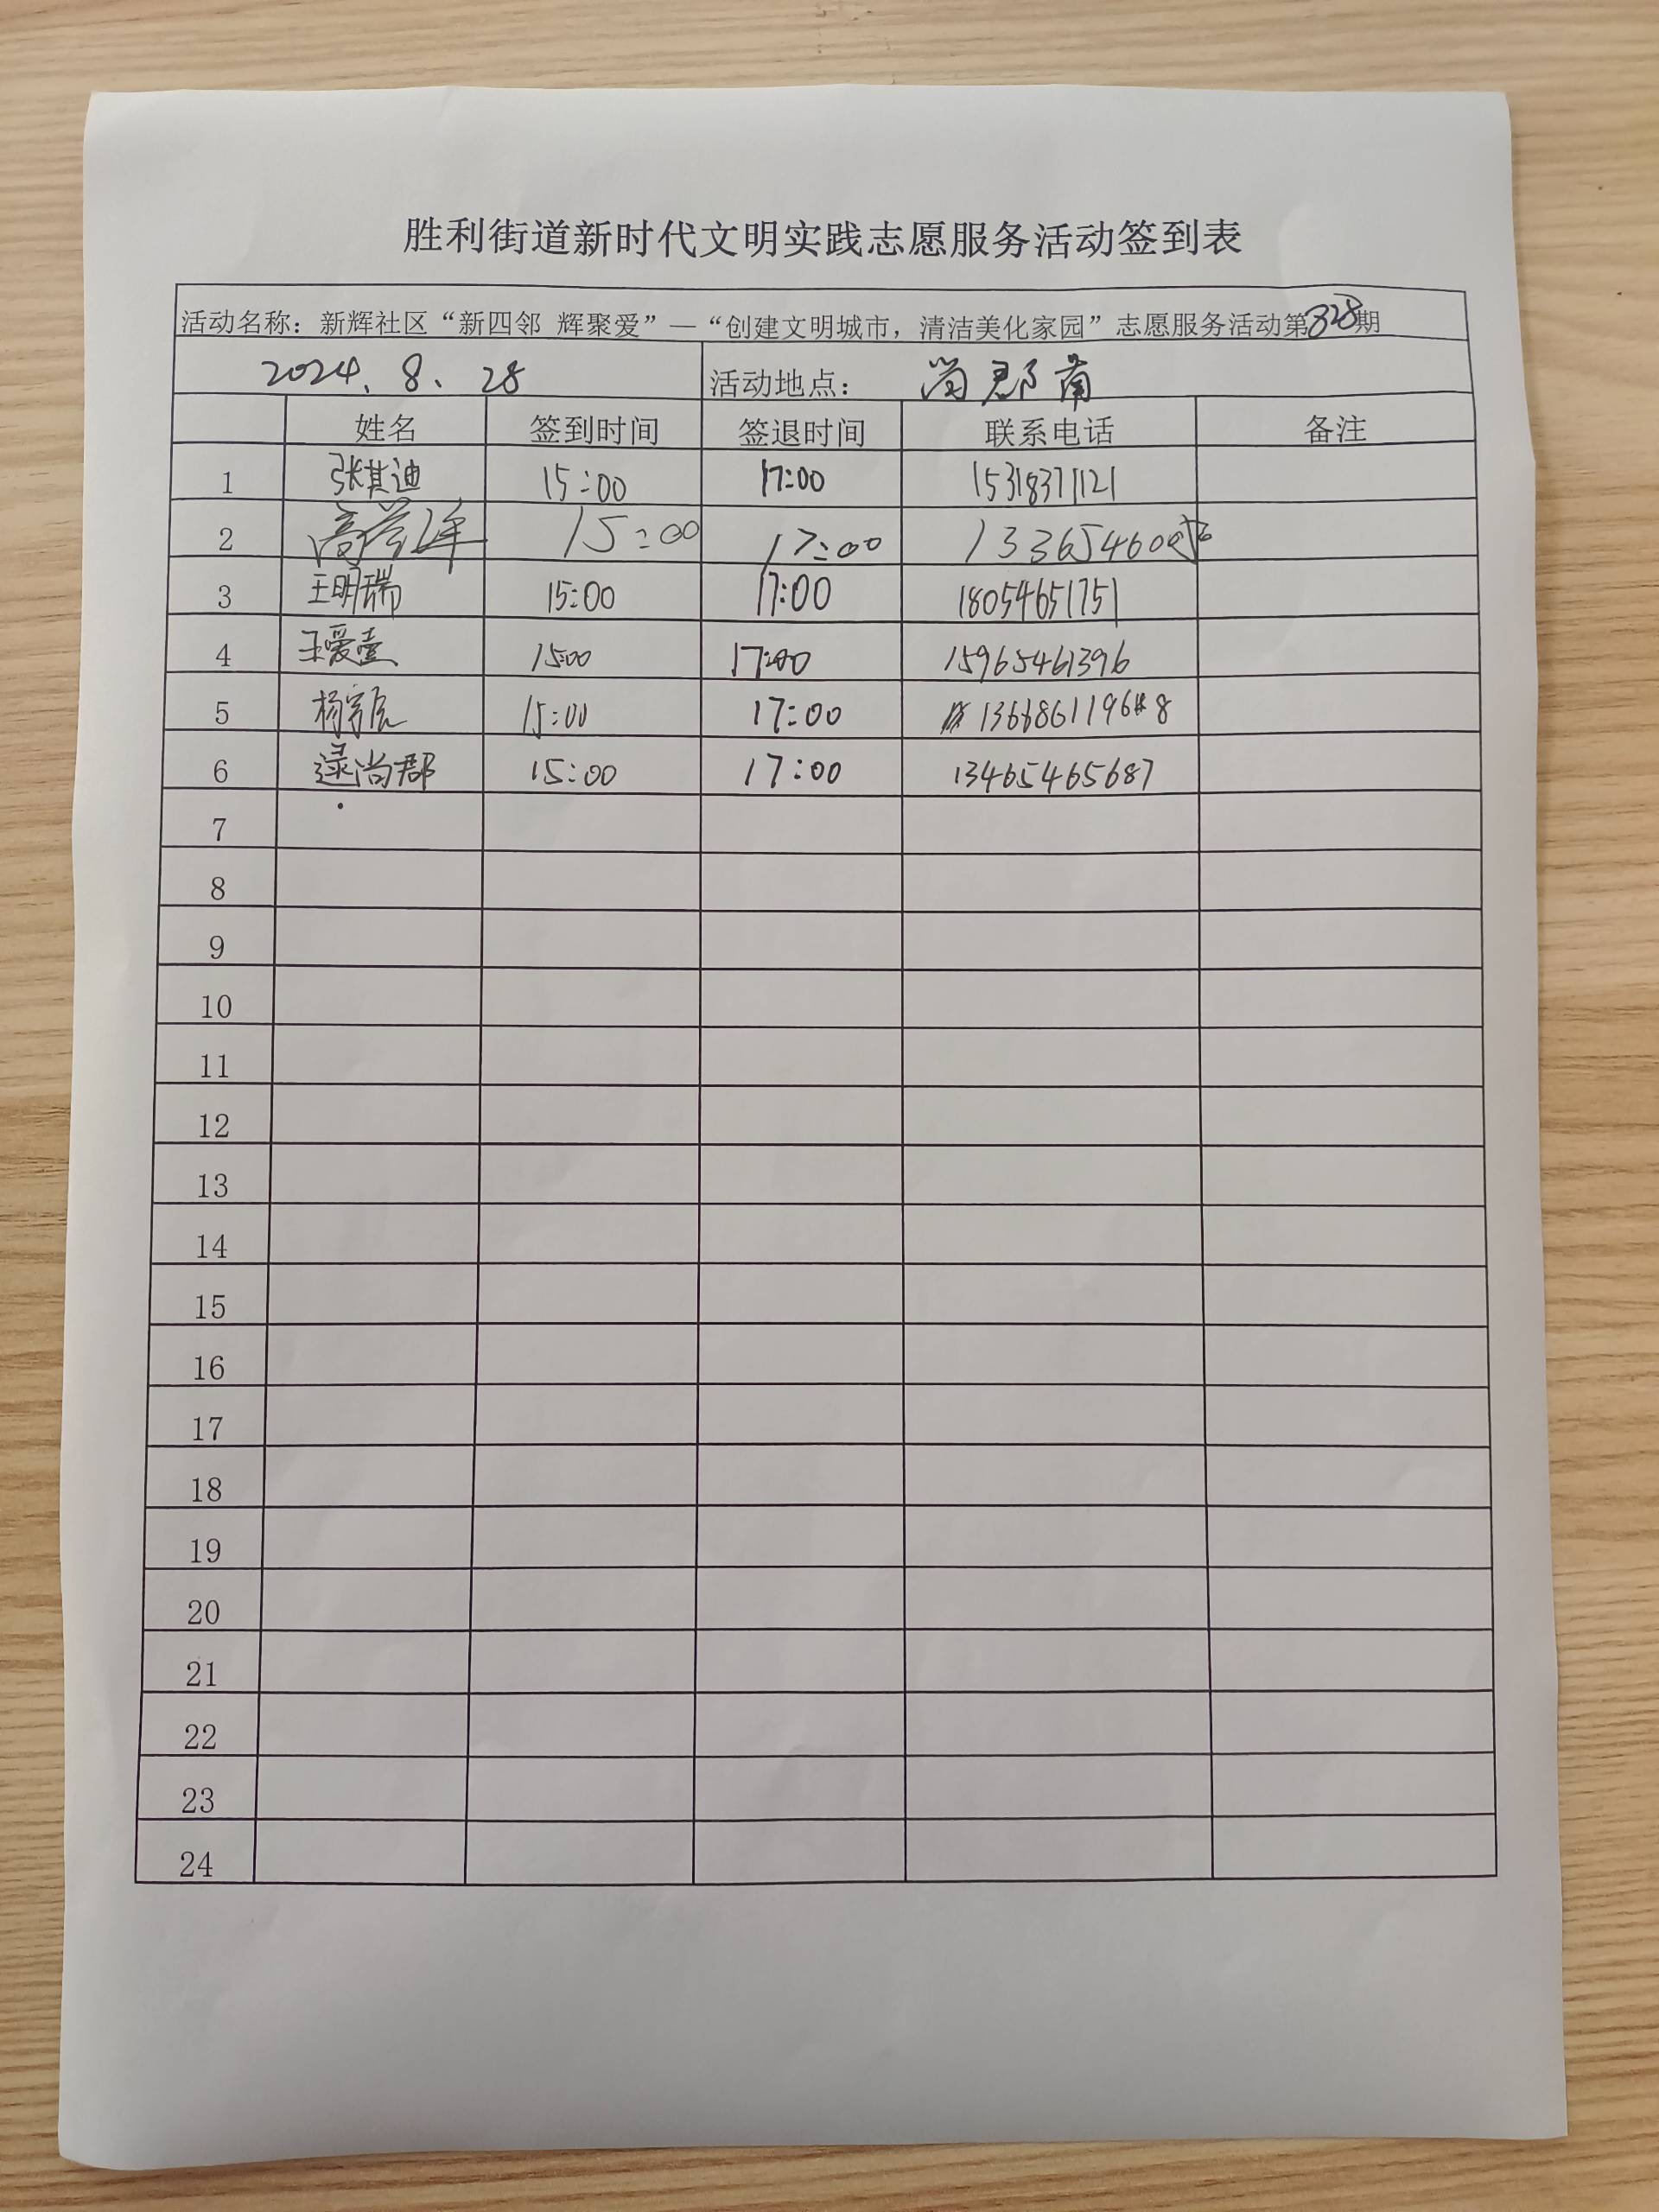 胜利街道新时代文明实践志愿服务活动签到表
活动名称：新辉社区“新四邻 辉聚爱”—“创建文明城市，清洁美化家园”志愿服务活动第328期
2024.8.28 活动地点： 尚郡南
姓名 签到时间 签退时间 联系电话 备注
1 张其迪 15:00 17:00 15318371121
2 15:00 17:00
3 王明瑞 15:00 17:00 18054651751
4 王爱壹 15:00 17:00 15965461396
5 杨宗辰 15:00 17:00
6 逯尚郡 15:00 17:00 13465465687
7
8
9
10
11
12
13
14
15
16
17
18
19
20
21
22
23
24